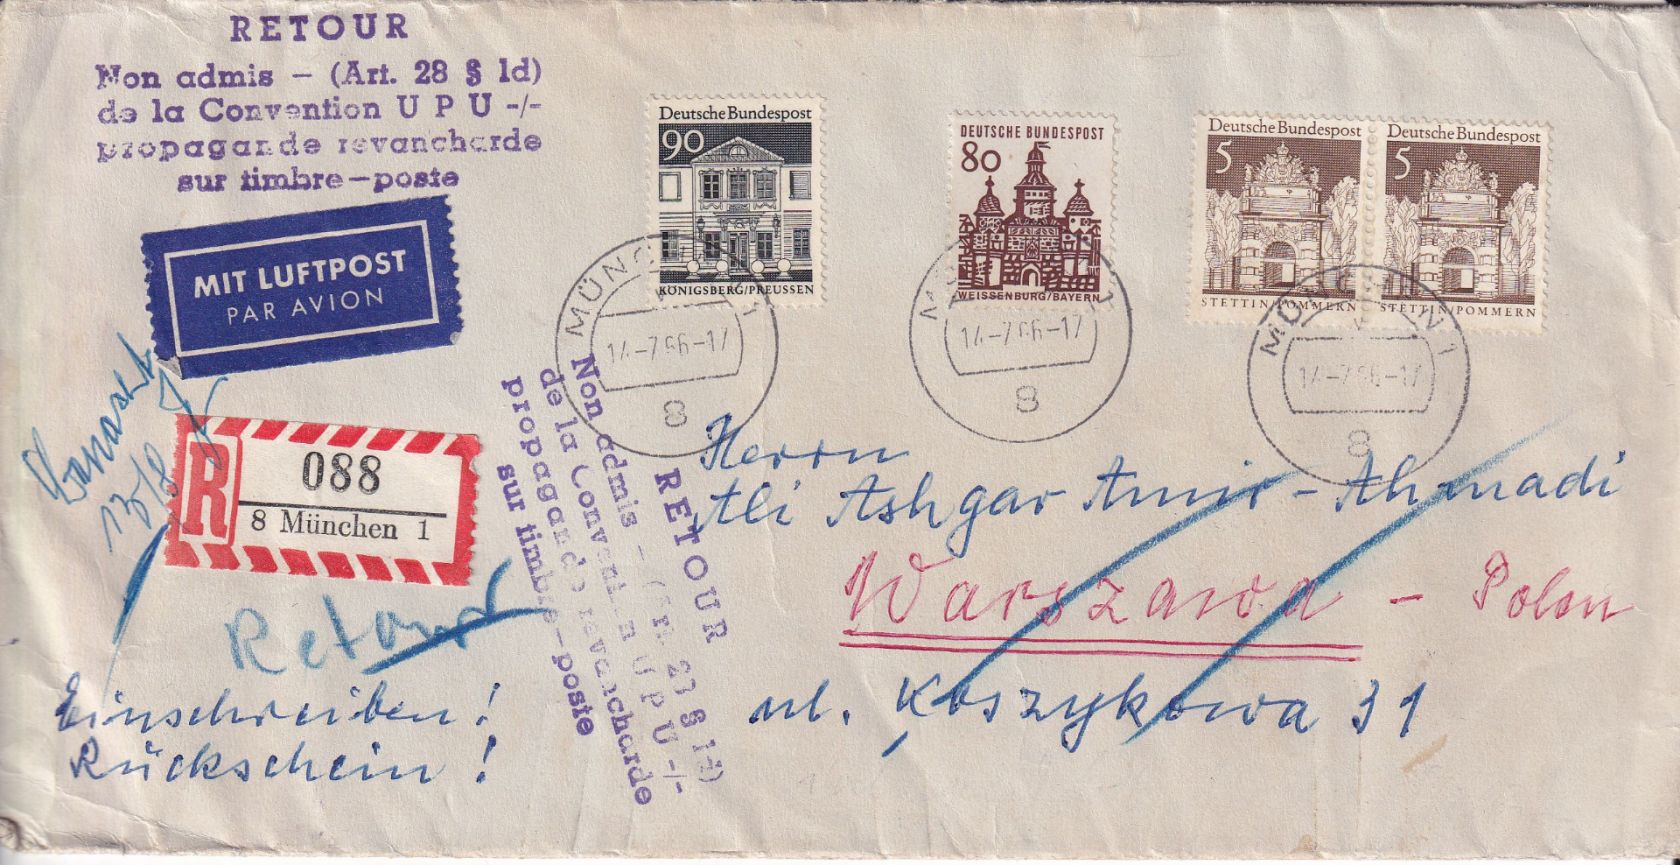 RETOUR
Non admis – (Art. 28 § 1d)
de la Convention U P U -/-
propagande revancharde
sur timbre–poste
MIT LUFTPOST
PAR AVION
Deutsche Bundespost
90
KÖNIGSBERG/PREUSSEN
DEUTSCHE BUNDESPOST
80
WEISSENBURG/BAYERN
Deutsche Bundespost
5
STETTIN/POMMERN
Deutsche Bundespost
5
STETTIN/POMMERN
MÜNCHEN 1
14.-7.66-17
8
MÜNCHEN 1
14.-7.66-17
8
MÜNCHEN 1
14.-7.66-17
8
13/8
R
088
8 München 1
RETOUR
Non admis – (Art. 28 § 1d)
de la Convention U P U -/-
propagande revancharde
sur timbre–poste
Herrn
Ali Ashgar Amir-Ahmadi
Warszawa - Polen
ul. Koszykowa 31
Retour
Einschreiben!
Rückschein!